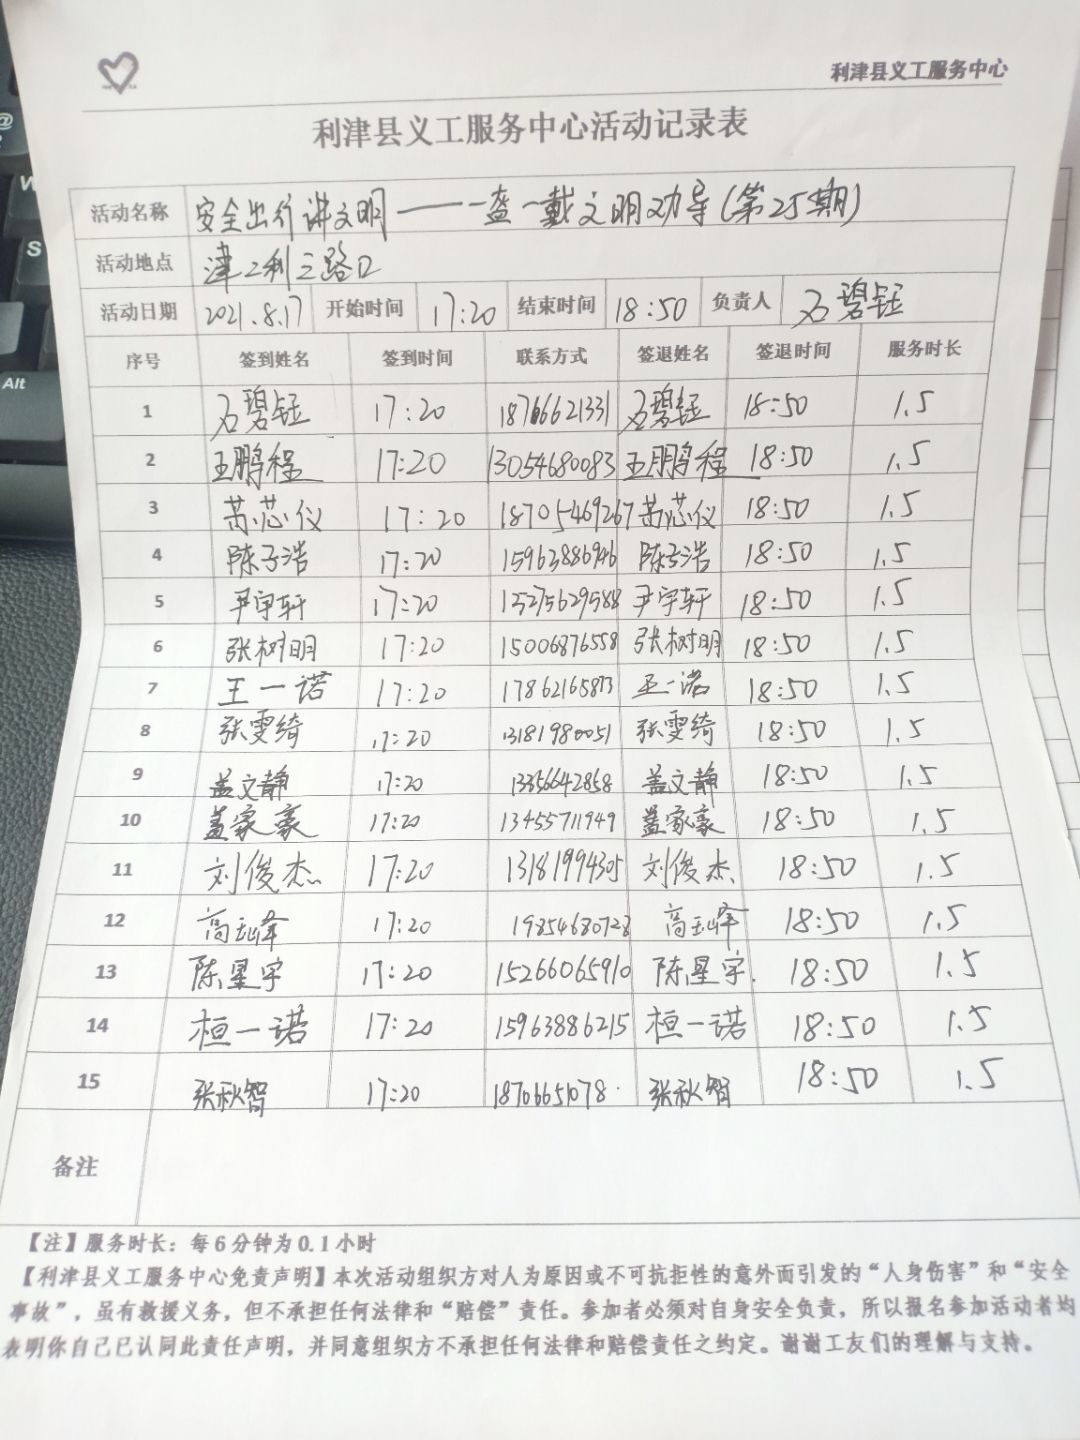 利津县义工服务中心
利津县义工服务中心活动记录表
活动名称 安全出行讲文明——一盔一戴文明劝导(第25期)
活动地点 津二利三路口
活动日期 2021.8.17 开始时间 17:20 结束时间 18:50 负责人 石碧钰
序号 签到姓名 签到时间 联系方式 签退姓名 签退时间 服务时长
1 石碧钰 17:20 18766621331 石碧钰 18:50 1.5
2 王鹏程 17:20 13054680083 王鹏程 18:50 1.5
3 芯仪 17:20 18705469267 芯仪 18:50 1.5
4 陈子浩 17:20 15963886946 陈子浩 18:50 1.5
5 尹宇轩 17:20 15275629588 尹宇轩 18:50 1.5
6 张树明 17:20 15006876558 张树明 18:50 1.5
7 王一诺 17:20 17862165873 王一诺 18:50 1.5
8 张雯绮 17:20 13181980051 张雯绮 18:50 1.5
9 盖文静 17:20 13356642858 盖文静 18:50 1.5
10 盖家豪 17:20 13455711949 盖家豪 18:50 1.5
11 刘俊杰 17:20 13181994305 刘俊杰 18:50 1.5
12 高峰 17:20 19854680728 高峰 18:50 1.5
13 陈星宇 17:20 15266065910 陈星宇 18:50 1.5
14 桓一诺 17:20 15963886215 桓一诺 18:50 1.5
15 张秋智 17:20 18706651078 张秋智 18:50 1.5
备注
【注】服务时长：每6分钟为0.1小时
【利津县义工服务中心免责声明】本次活动组织方对人为原因或不可抗拒性的意外而引发的“人身伤害”和“安全
事故”，虽有救援义务，但不承担任何法律和“赔偿”责任。参加者必须对自身安全负责，所以报名参加活动者均
表明你自己已认同此责任声明，并同意组织方不承担任何法律和赔偿责任之约定。谢谢工友们的理解与支持。
@
W
S
Alt